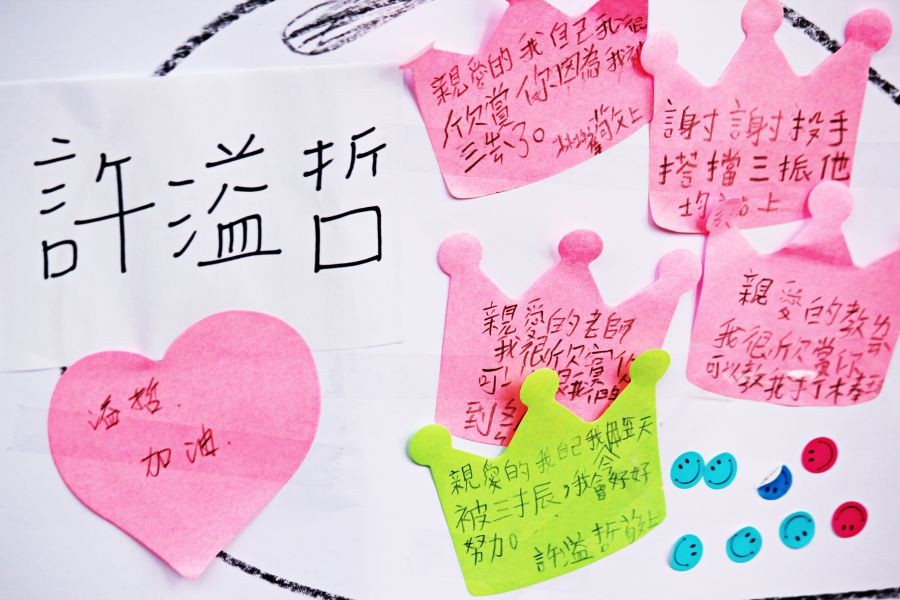 許溢哲
溢哲.
加油.
親愛的我自己我很
欣賞你因為我被
三芸了。
敬上
謝謝投手
搭擋三振他
均敬上
親愛的老師
我很欣賞你
可以
到
親愛的教
我很欣賞你
可以教我打棒
親愛的我自己我今天
被三振,我會好好
努力。
許溢哲敬上